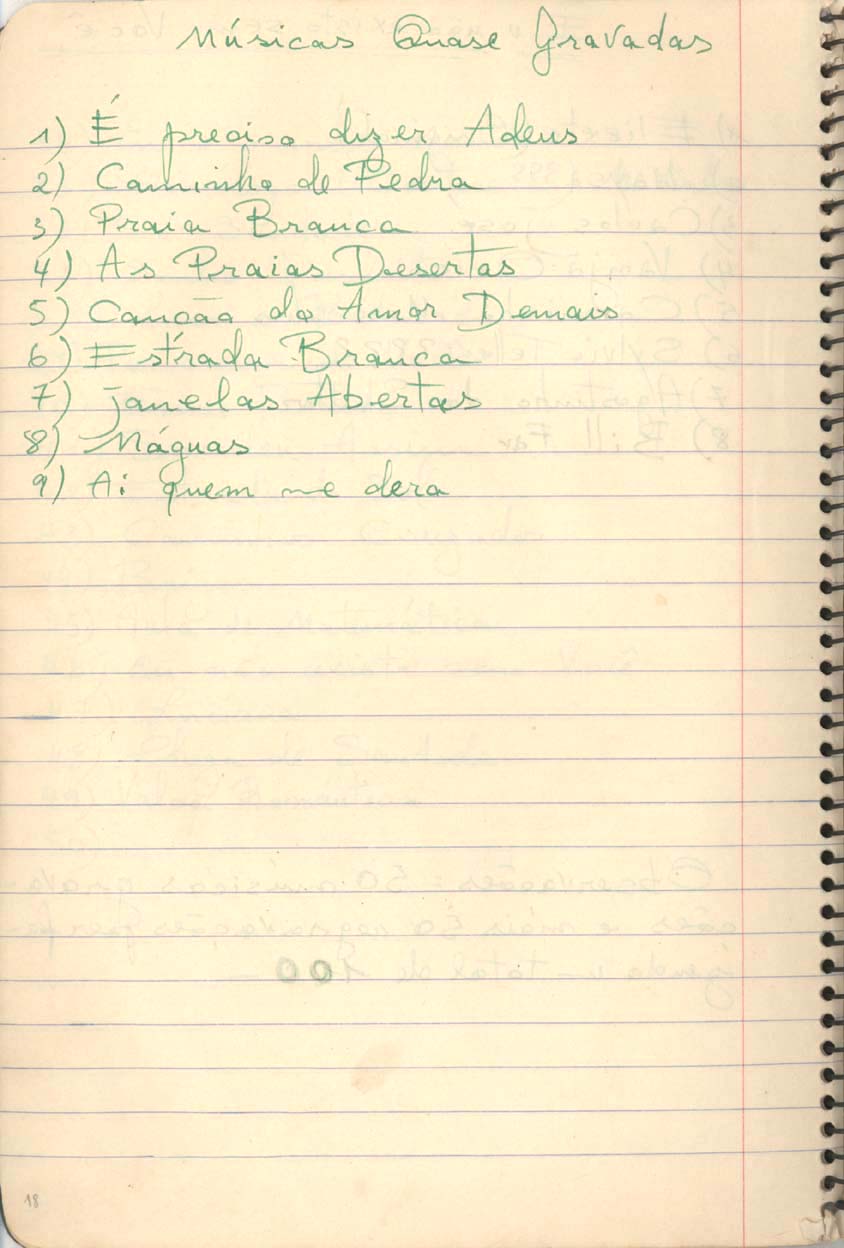 Músicas Quase Gravadas
1) É preciso dizer Adeus
2) Caminho de Pedra
3) Praia Branca
4) As Praias Desertas
5) Canção do Amor Demais
6) Estrada Branca
7) Janelas Abertas
8) Máguas
9) Ai quem me dera
18